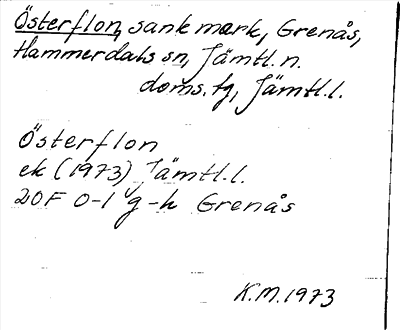 Österflon, sank mark, Grenås,
Hammerdals sn, Jämtl. n.
doms. tg, Jämtl. l.
Österflon
ek (1973) Jämtl. l.
DOF 0-1 g-h Grenås
K.M. 1973